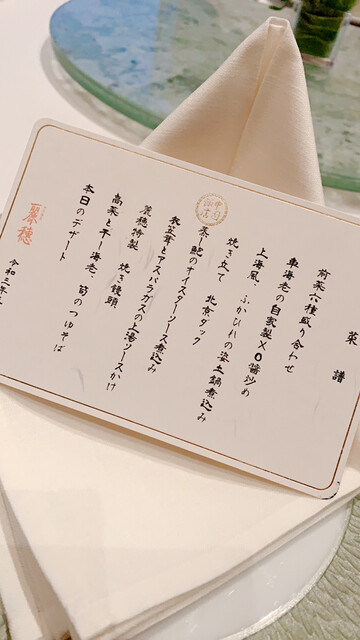 菜譜
前菜六種盛り合わせ
車海老の自家製XO醤炒め
上海風、ふかひれの姿土鍋煮込み
焼き立て 北京ダック
蒸し鮑のオイスターソース煮込み
衣笠茸とアスパラガスの上湯ソースかけ
麗穂特製 焼き饅頭
高菜と干し海老、筍のつゆそば
本日のデザート
麗穂
令和三年